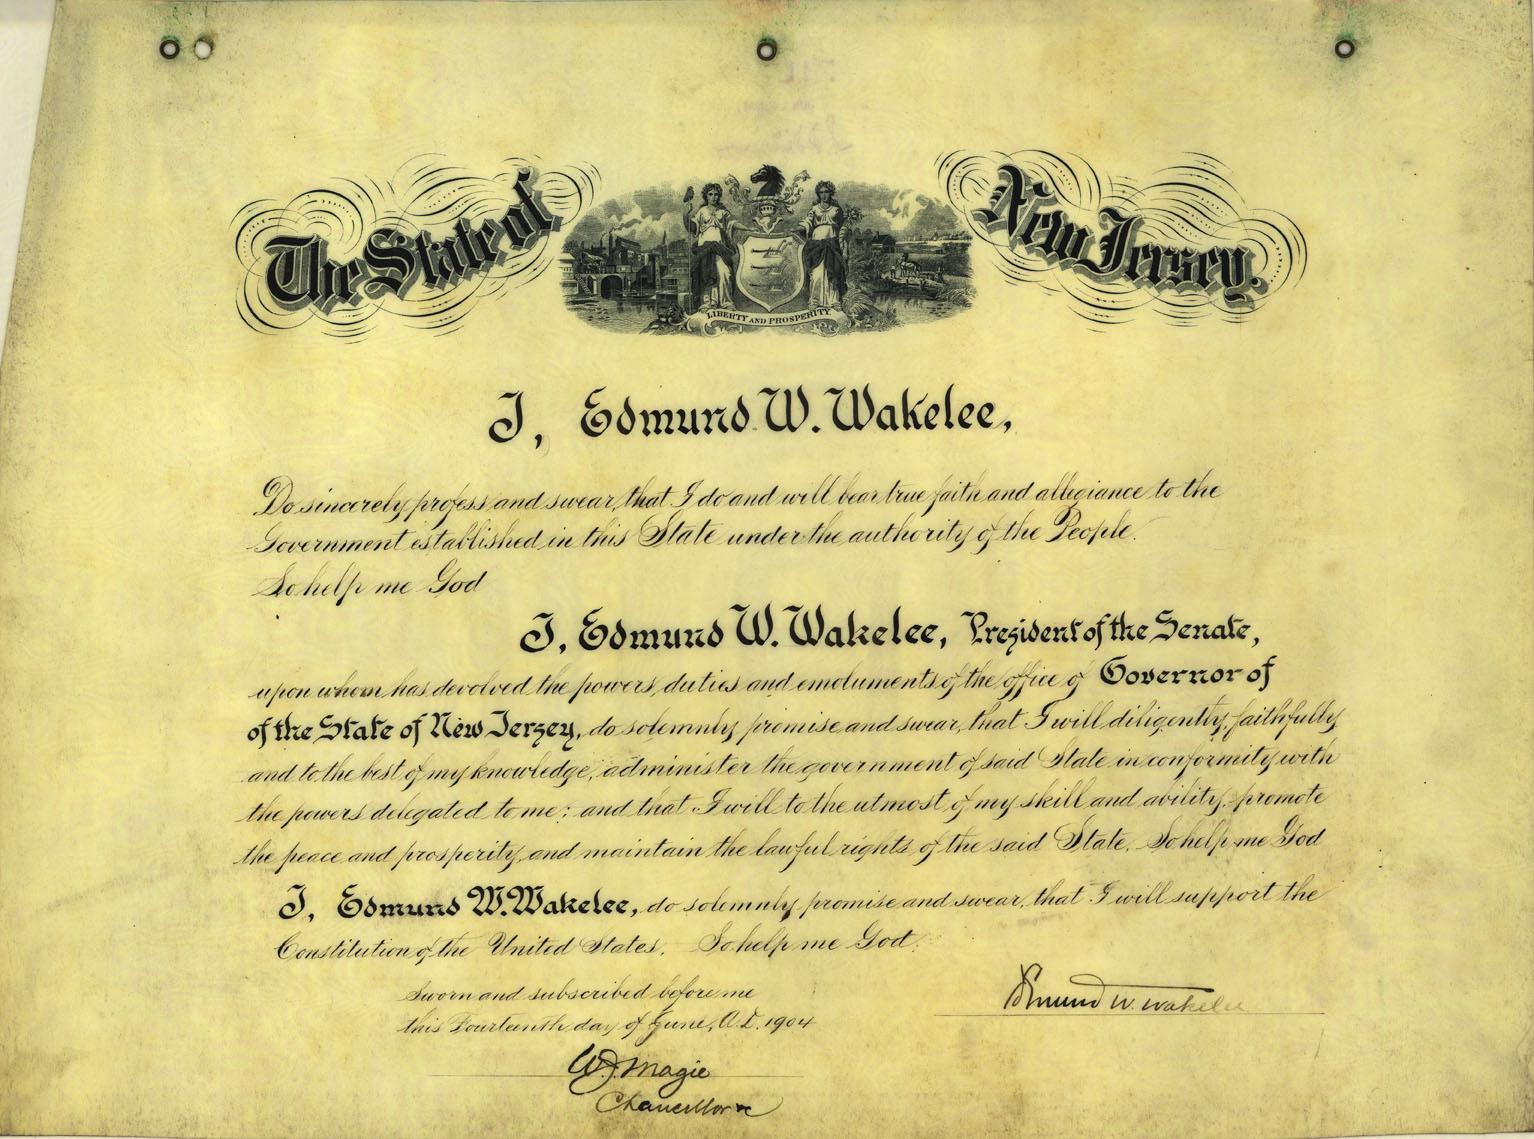 The State of New Jersey.
LIBERTY AND PROSPERITY
I, Edmund W. Wakelee,
Do sincerely profess and swear, that I do and will bear true faith and allegiance to the
Government established in this State under the authority of the People.
So help me God
I, Edmund W. Wakelee, President of the Senate,
upon whom has devolved the powers, duties and emoluments of the office of Governor of
of the State of New Jersey, do solemnly promise and swear, that I will diligently, faithfully
and to the best of my knowledge, administer the government of said State in conformity with
the powers delegated to me; and that I will to the utmost of my skill and ability, promote
the peace and prosperity, and maintain the lawful rights of the said State. So help me God
I, Edmund W. Wakelee, do solemnly promise and swear, that I will support the
Constitution of the United States. So help me God.
Sworn and subscribed before me
this Fourteenth day of June, A.D. 1904
Edmund W. Wakelee
W. J. Magie
Chancellor &c